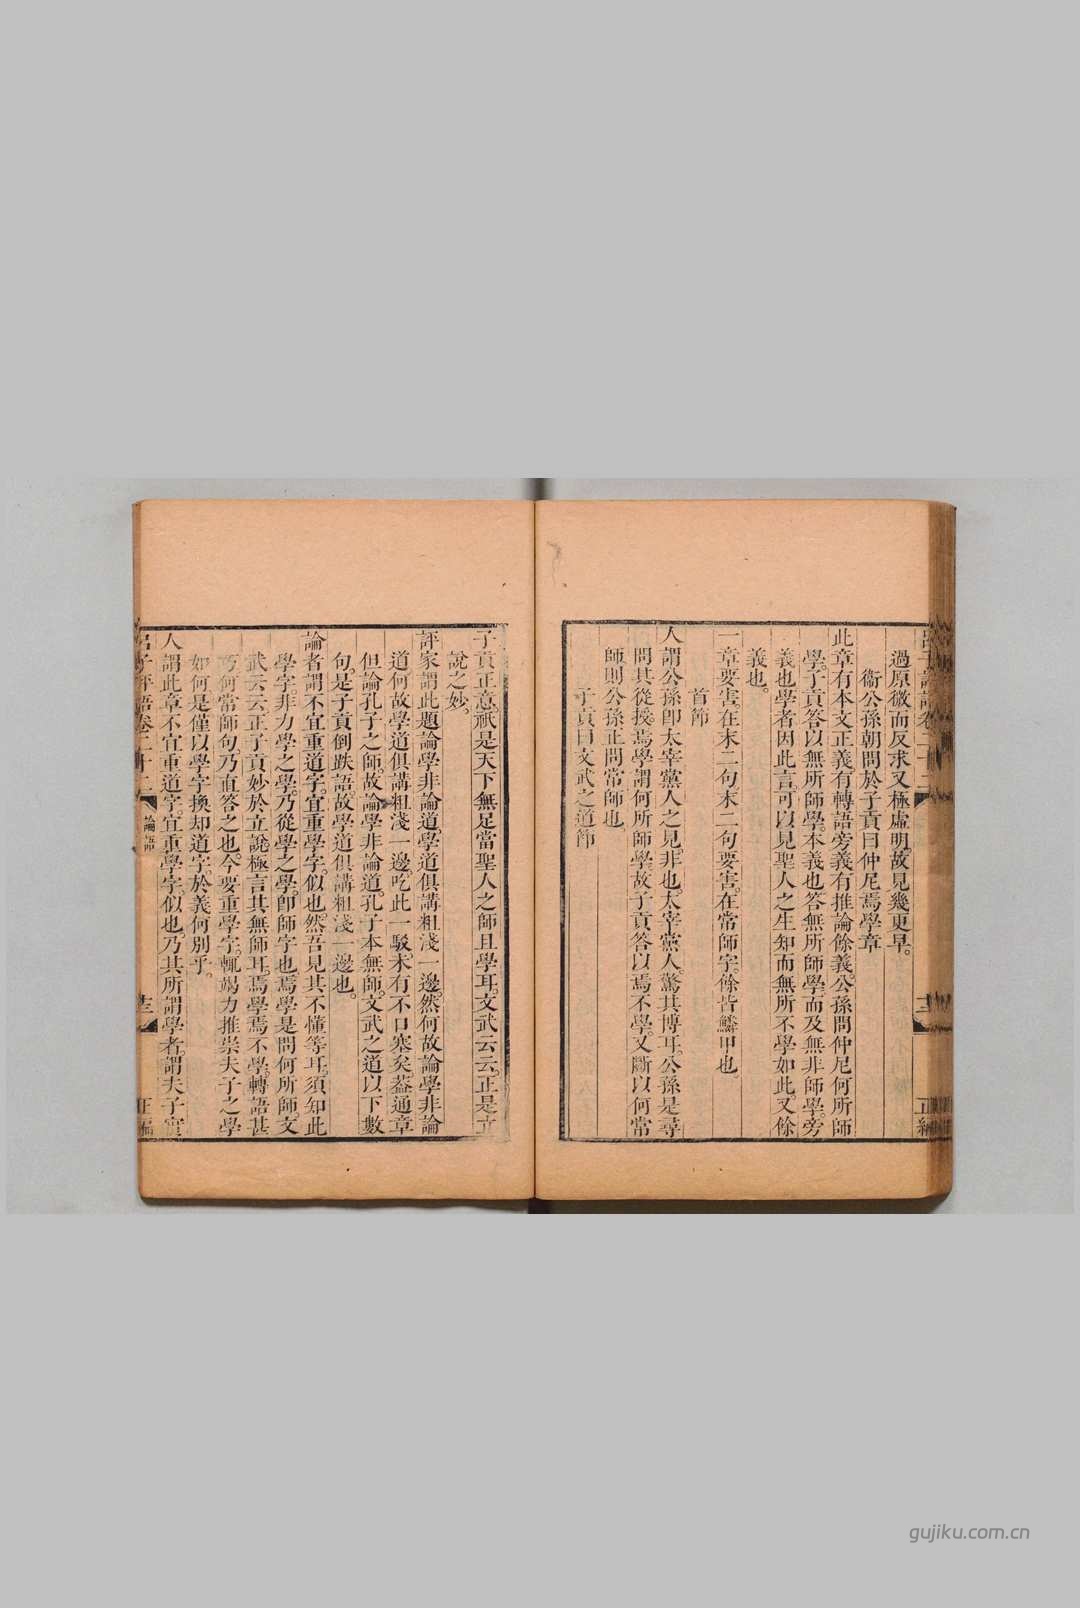 過原微而反求又極虛明。故見幾更早。
衞公孫朝問於子貢曰仲尼焉學章
此章有本文正義有轉語旁義有推論餘義。公孫問仲尼何所師
學。子貢答以無所師學。本義也答無所師學而及無非師學。旁
義也學者因此言。可以見聖人之生知而無所不學如此。又餘
義也。
一章要害。在末二句末二句要害。在常師字。餘皆鱗甲也。
首節
人謂公孫卽太宰黨人之見。非也。太宰黨人。驚其博耳。公孫是尋
問其從授。焉學謂何所師學。故子貢答以焉不學。又斷以何常
師。則公孫止問常師也
子貢曰文武之道節
子貢正意。祇是天下無足當聖人之師且學耳。文武云云。正是立
說之妙。
評家謂此題論學非論道學道俱講粗淺一邊。然何故論學非論
道。何故學道俱講粗淺一邊。吃此一駁。未有不口塞矣。葢通章
但論孔子之師。故論學非論道。孔子本無師。文武之道以下數
句。是子貢倒跌語。故學道俱講粗淺一邊也。
論者謂不宜重道字。宜重學字。似也。然吾見其不懂等耳。須知此
學字非力學之學。乃從學之學。卽師字也。焉學是問何所師。文
武云云正子貢妙於立說。極言其無師耳。焉學焉不學。轉語甚
巧。何常師句乃直答之也。今要重學字。輒竭力推崇夫子之學
如何是僅以學字換却道字。於義何別乎。
人謂此章不宜重道字。宜重學字。似也乃其所謂學者。謂夫子實
呂子評語卷二十二
論語
十三
正編
gujiku.com.cn